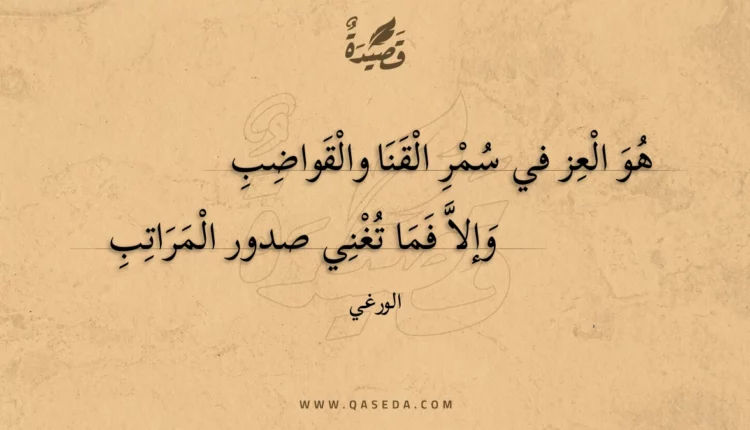 قَصِيْدَةٌ
هُوَ الْعِز في سُمْرِ الْقَنَا والْقَواضِبِ
وَإلاَّ فَمَا تُغْنِي صدور الْمَرَاتِبِ
الورغي
WWW.QASEDA.COM